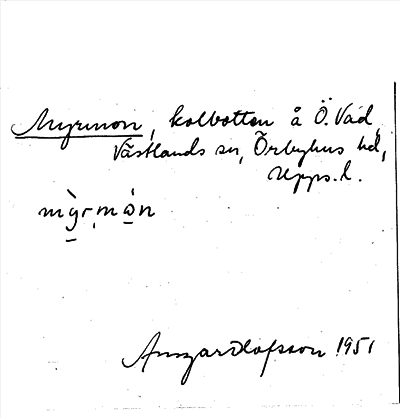 Myrmon, kolbotten å Ö. Våd,
Västlands sn, Örbyhus hd,
Upps. l.
mỳr,mòn
Ansgar Olofsson 1951